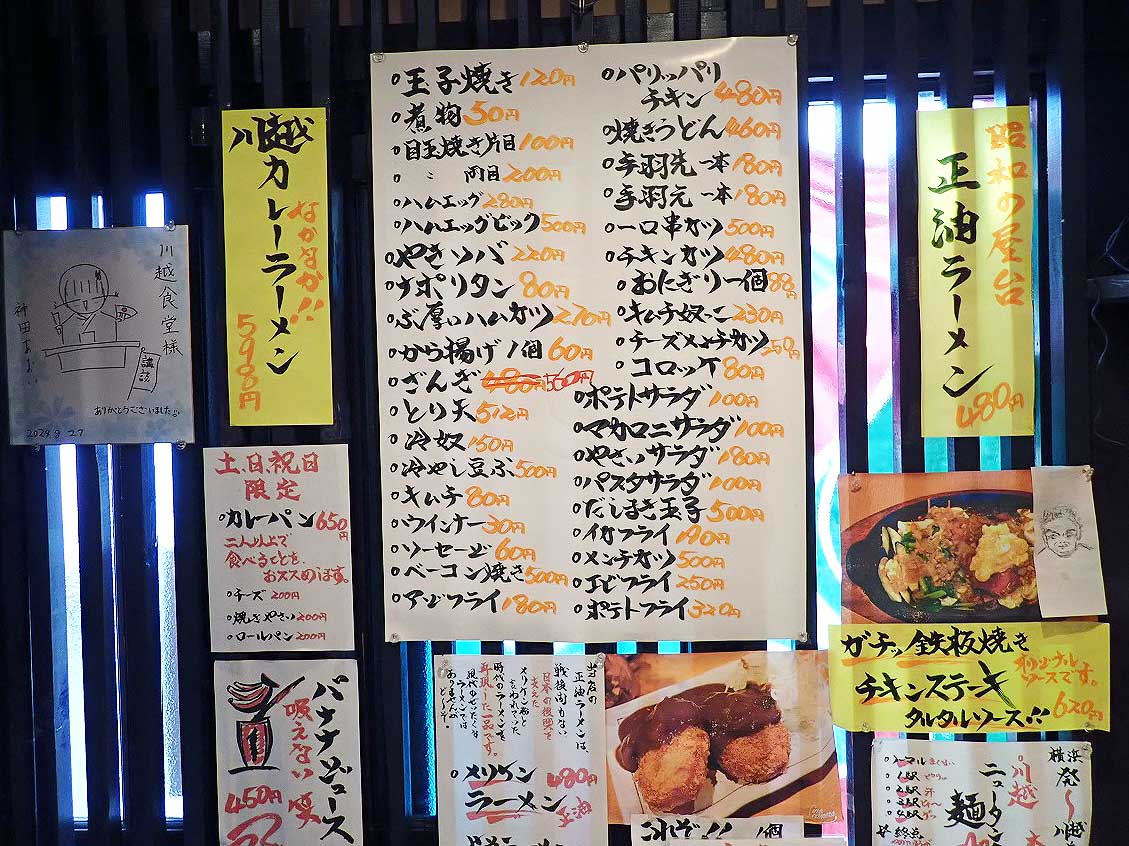 川越食堂様
神田あおい
講談
ありがとうございました
2024 9 27
川越カレーラーメン
なかなか!!
590円
土、日、祝日
限定
○カレーパン 650円
二人以上で
食べることを
おススめします。
○チーズ 200円
○焼きやさい 200円
○ロールパン 200円
バナナジュース
吸えない 笑
450円
○玉子焼き 120円
○煮物 50円
○目玉焼き片目 100円
○〃 両目 200円
○ハムエッグ 280円
○ハムエッグビック 500円
○やきソバ 220円
○ナポリタン 80円
○ぶ厚いハムカツ 270円
○から揚げ1個 60円
○ざんぎ 480円 560円
○とり天 512円
○冷奴 150円
○冷やし豆ふ 500円
○キムチ 80円
○ウインナー 30円
○ソーセージ 60円
○ベーコン焼き 500円
○アジフライ 180円
○パリッパリ
チキン 480円
○焼きうどん 460円
○手羽先 一本 180円
○手羽元 一本 180円
○一口串カツ 500円
○チキンカツ 480円
○おにぎり一個 88円
○キムチ奴っこ 230円
○チーズメンチカツ 250円
○コロッケ 80円
○ポテトサラダ 100円
○マカロニサラダ 100円
○やさいサラダ 180円
○パスタサラダ 100円
○だしまき玉子 500円
○イカフライ 190円
○メンチカツ 500円
○エビフライ 250円
○ポテトフライ 320円
昭和の屋台
正油ラーメン
480円
ガチッ鉄板焼き
チキンステーキ
タルタルソース!!
オリジナル
ソースです。
620円
当店の
正油ラーメンは、
戦後間もない
日本の復興を
支えた
メリケン粉と
言われていた
時代のラーメンを
再現した一品です。
○メリケン
ラーメン
480円
正油
これぞ!! 1個
横浜
発〜
川越
ニュータン
麺